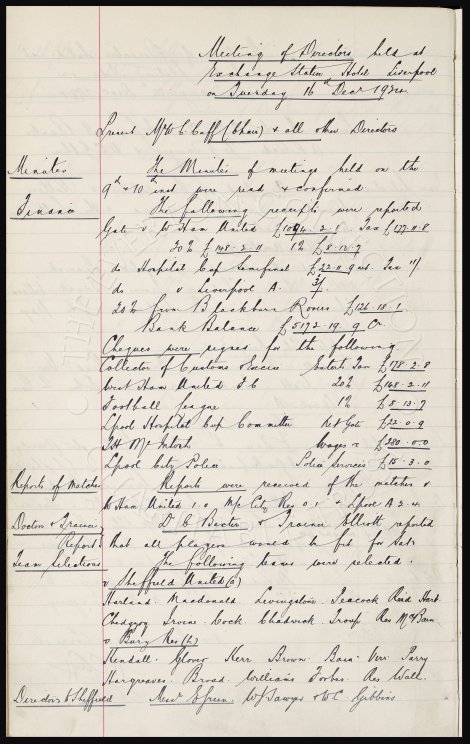 Meeting of Directors held at
Exchange Station Hotel Liverpool
on Tuesday 16th Decr 1924
Present Mr W. C. Cuff (Chair) & all other Directors
Minutes The Minutes of meetings held on the
9th & 10th inst were read & confirmed
Finance The following receipts were reported
Gate v W Ham United £1094. 2. 1 Tax £177. 11. 8
20% £148. 2. 11 1% £8. 13. 7
do Hospital Cup Semifinal £22. 11. 9 Tax
do v Liverpool A.
20% from Blackburn Rovers £126. 18. 1
Bank Balance £5172. 19. 9 Cr.
Cheques were signed for the following
Collector of Customs & Excise Enterts Tax £178. 2. 8
West Ham United F C 20% £148. 2. 11
Football League 1% £8. 13. 7
Lpool Hospital Cup Committee Net Gate £22. 0. 9
T.H. McIntosh Wages £280. 0. 0
Lpool City Police Police Services £15. 3. 0
Reports of Matches Reports were received of the matches v
W Ham United 1.0 M/c City Res 0.1 & Lpool A 2.4
Doctors & Trainer's Dr C Baxter & Trainer Elliott reported
Report that all players would be fit for Sat.
Team Selections The following teams were selected.
v Sheffield United (a)
Harland. Macdonald. Livingstone. Peacock Reid Hart.
Chedgzoy Irvine. Cock Chadwick Troup Res McBain
v Bury Res (h)
Kendall. Glover Kerr Brown. Bain. Virr. Parry
Hargreaves. Broad. Williams Forbes. Res Wall.
Directors to Sheffield Messrs E Green, W J Sawyer & W C Gibbins